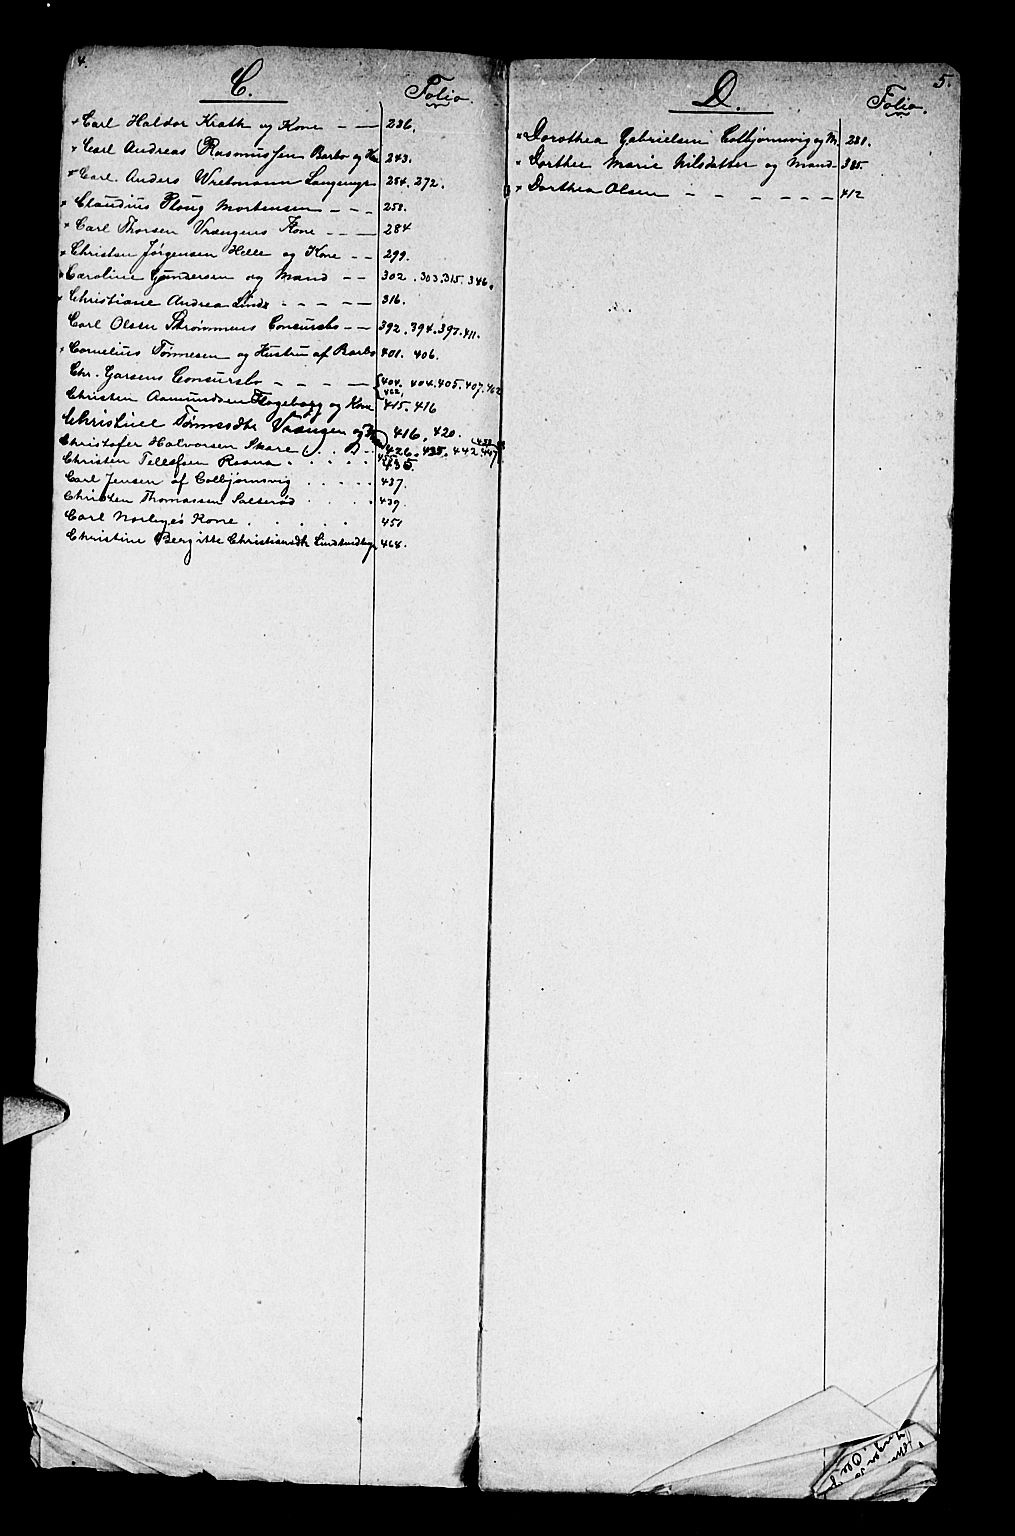 4.
C.
Folio.
× Carl Haldor Krath og Kone - - 236.
× Carl Andreas Rasmussen Barbo og 243.
× Carl Anders Wretmann Langsnyt 254. 272.
× Claudius Ploug Mortensen - - - 258.
× Carl Thorsen Vrængens Kone - - - 284
× Christen Jørgensen Helle og Kone - - 299.
× Caroline Gundersen og Mand - - 302. 303. 315. 346.
× Christiane Andrea Lind - - - - - 316.
Carl Olsen Strømmens Concursbo - - 392. 394. 397. 411.
× Cornelius Tønnesen og Hustru af Barbo 401. 406.
Chr. Garsens Concursbo - - - - - 404. 404. 405. 407. 462
462,
Christen Aamundsen Flageborg og Kone 415. 416
Christine Tønnesdtr Vrængen og 416, 420.
Christofer Halvorsen Skare . . . 426. 435. 442 447
Christen Tellefsen Raana . . . . . 435
Carl Jensen af Colbjørnsvig . . . . . 437.
Christen Thomassen Salterød . . . . 439.
Carl Norbyes Kone . . . . . 451
Christine Bergitte Christiansdtr 464.
5.
D.
Folio.
× Dorothea Gabrielsen Colbjørnsvig og M. 281.
× Dorthee Marie Nilsdatter og Mand 385.
× Dorthea Olsen - - - - - - 412